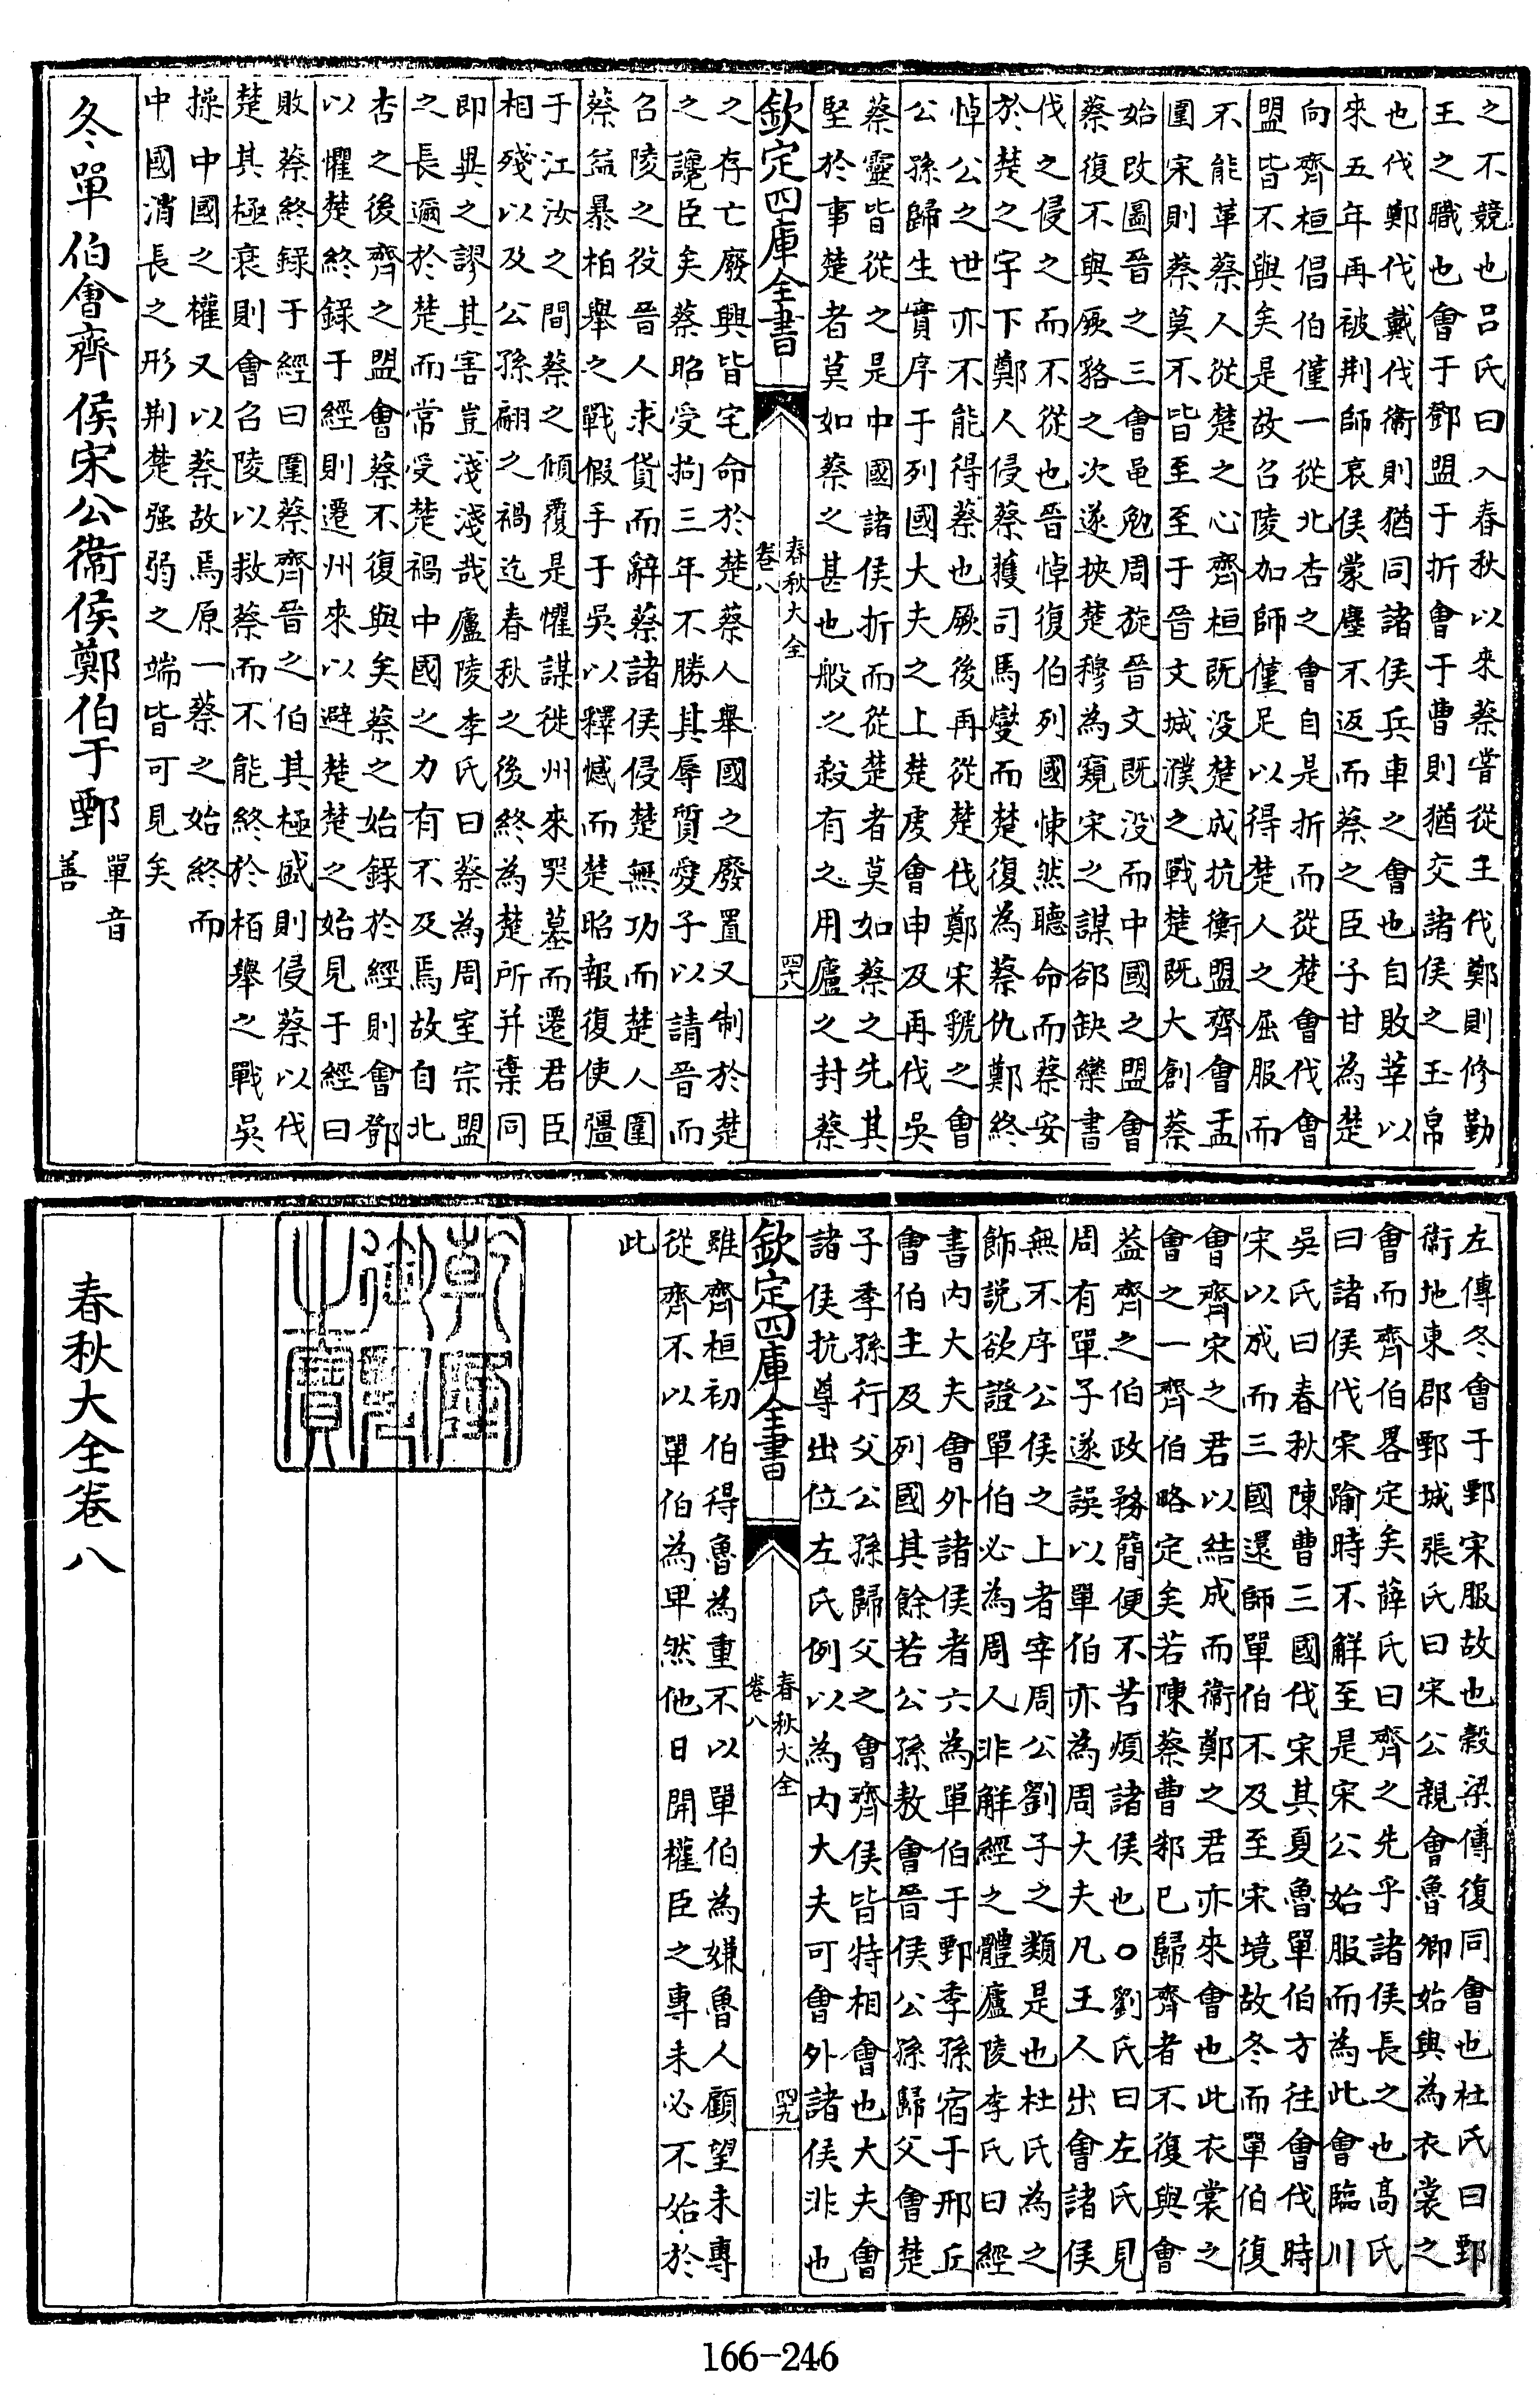 之不競也吕氏曰入春秋以來蔡嘗從王伐鄭則修勤
王之職也會于鄧盟于折會于曹則猶交諸侯之玉帛
也伐鄭伐戴伐衛則猶同諸侯兵車之會也自敗莘以
來五年再被荆師哀侯蒙塵不返而蔡之臣子甘為楚
向齊桓倡伯僅一從北杏之會自是折而從楚會伐會
盟皆不與矣是故召陵加師僅足以得楚人之屈服而
不能革蔡人從楚之心齊桓既没楚成抗衡盟齊會盂
圍宋則蔡莫不皆至至于晉文城濮之戰楚既大創蔡
始改圖晉之三會黽勉周旋晉文既没而中國之盟會
蔡復不與厥貉之次遂挾楚穆為窺宋之謀郤缺欒書
伐之侵之而不從也晉悼復伯列國悚然聽命而蔡安
於楚之宇下鄭人侵蔡獲司馬燮而楚復為蔡仇鄭終
悼公之世亦不能得蔡也厥後再從楚伐鄭宋虢之會
公孫歸生實序于列國大夫之上楚虔會申及再伐吳
蔡靈皆從之是中國諸侯折而從楚者莫如蔡之先其
堅於事楚者莫如蔡之甚也般之殺有之用廬之封蔡
欽定四庫全書
春秋大全
卷八
四十八
之存亡廢興皆宅命於楚蔡人舉國之廢置又制於楚
之讒臣矣蔡昭受拘三年不勝其辱質愛子以請晉而
召陵之役晉人求貨而辭蔡諸侯侵楚無功而楚人圍
蔡益暴柏舉之戰假手于吳以釋憾而楚昭報復使疆
于江汝之間蔡之傾覆是懼謀徙州來哭墓而遷君臣
相殘以及公孫翩之禍迄春秋之後終為楚所并棄同
即異之謬其害豈淺淺哉廬陵李氏曰蔡為周室宗盟
之長邇於楚而常受楚禍中國之力有不及焉故自北
杏之後齊之盟會蔡不復與矣蔡之始錄於經則會鄧
以懼楚終錄于經則遷州來以避楚楚之始見于經曰
敗蔡終錄于經曰圍蔡齊晉之伯其極盛則侵蔡以伐
楚其極衰則會召陵以救蔡而不能終於栢舉之戰吳
操中國之權又以蔡故焉原一蔡之始終而
中國消長之形荆楚强弱之端皆可見矣
冬單伯會齊侯宋公衛侯鄭伯于鄄
單音
善
左傳冬會于鄄宋服故也穀梁傳復同會也杜氏曰鄄
衛地東郡鄄城張氏曰宋公親會魯卿始與為衣裳之
會而齊伯畧定矣薛氏曰齊之先乎諸侯長之也髙氏
曰諸侯伐宋踰時不觧至是宋公始服而為此會臨川
吳氏曰春秋陳曹三國伐宋其夏魯單伯方往會伐時
宋以成而三國還師單伯不及至宋境故冬而單伯復
會齊宋之君以結成而衛鄭之君亦來會也此衣裳之
會之一齊伯略定矣若陳蔡曹邾已歸齊者不復與會
蓋齊之伯政務簡便不苦煩諸侯也○劉氏曰左氏見
周有單子遂誤以單伯亦為周大夫凡王人出會諸侯
無不序公侯之上者宰周公劉子之類是也杜氏為之
飾説欲證單伯必為周人非觧經之體廬陵李氏曰經
書内大夫會外諸侯者六為單伯于鄄季孫宿于邢丘
會伯主及列國其餘若公孫敖會晉侯公孫歸父會楚
子季孫行父公孫歸父之會齊侯皆特相會也大夫會
諸侯抗尊出位左氏例以為内大夫可會外諸侯非也
欽定四庫全書
春秋大全
卷八
四十九
雖齊桓初伯得魯為重不以單伯為嫌魯人顧望未專
從齊不以單伯為卑然他日開權臣之專未必不始於
此
乾隆
御覽
之寶
春秋大全卷八
166-246